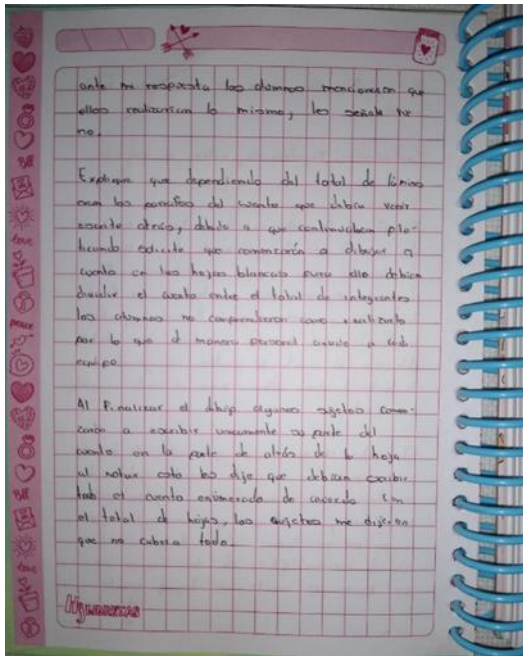 ante mi respuesta los alumnos mencionaron que
ellos realizarian lo mismo, les señale que
no.
Explique que dependiendo del total de láminas
eran los parrafos del cuento que debia venir
escrito atras, debido a que continuaban plati-
cando solicite que comenzarán a dibujar el
cuento en las hojas blancas para ello debian
dividir el cuento entre el total de integrantes
los alumnos no comprendieron como realizarlo
por lo que de manera personal acudi a cada
equipo
Al finalizar el dibujo algunos sujetos comen-
zaron a escribir unicamente su parte del
cuento en la parte de atrás de la hoja
al notar esto les dije que debian escribir
todo el cuento enumerado de acuerdo con
el total de hojas, los sujetos me dijeron
que no cubria todo.
love
peace
love